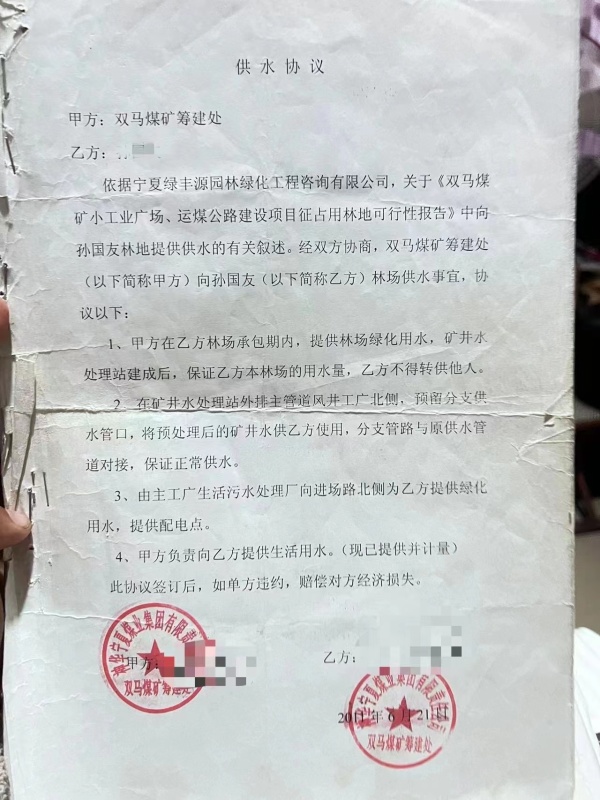 供水协议
甲方：双马煤矿筹建处
乙方：
依据宁夏绿丰源园林绿化工程咨询有限公司，关于《双马煤
矿小工业广场、运煤公路建设项目征占用林地可行性报告》中向
孙国友林地提供供水的有关叙述。经双方协商，双马煤矿筹建处
（以下简称甲方）向孙国友（以下简称乙方）林场供水事宜，协
议以下：
1、甲方在乙方林场承包期内，提供林场绿化用水，矿井水
处理站建成后，保证乙方本林场的用水量，乙方不得转供他人。
2、在矿井水处理站外排主管道风井工广北侧，预留分支供
水管口，将预处理后的矿井水供乙方使用，分支管路与原供水管
道对接，保证正常供水。
3、由主工广生活污水处理厂向进场路北侧为乙方提供绿化
用水，提供配电点。
4、甲方负责向乙方提供生活用水。（现已提供并计量）
此协议签订后，如单方违约，赔偿对方经济损失。
甲方：
乙方：
神华宁夏煤业集团有限责
双马煤矿筹建处
2011年6月21日
华宁夏煤业集团有限责
双马煤矿筹建处